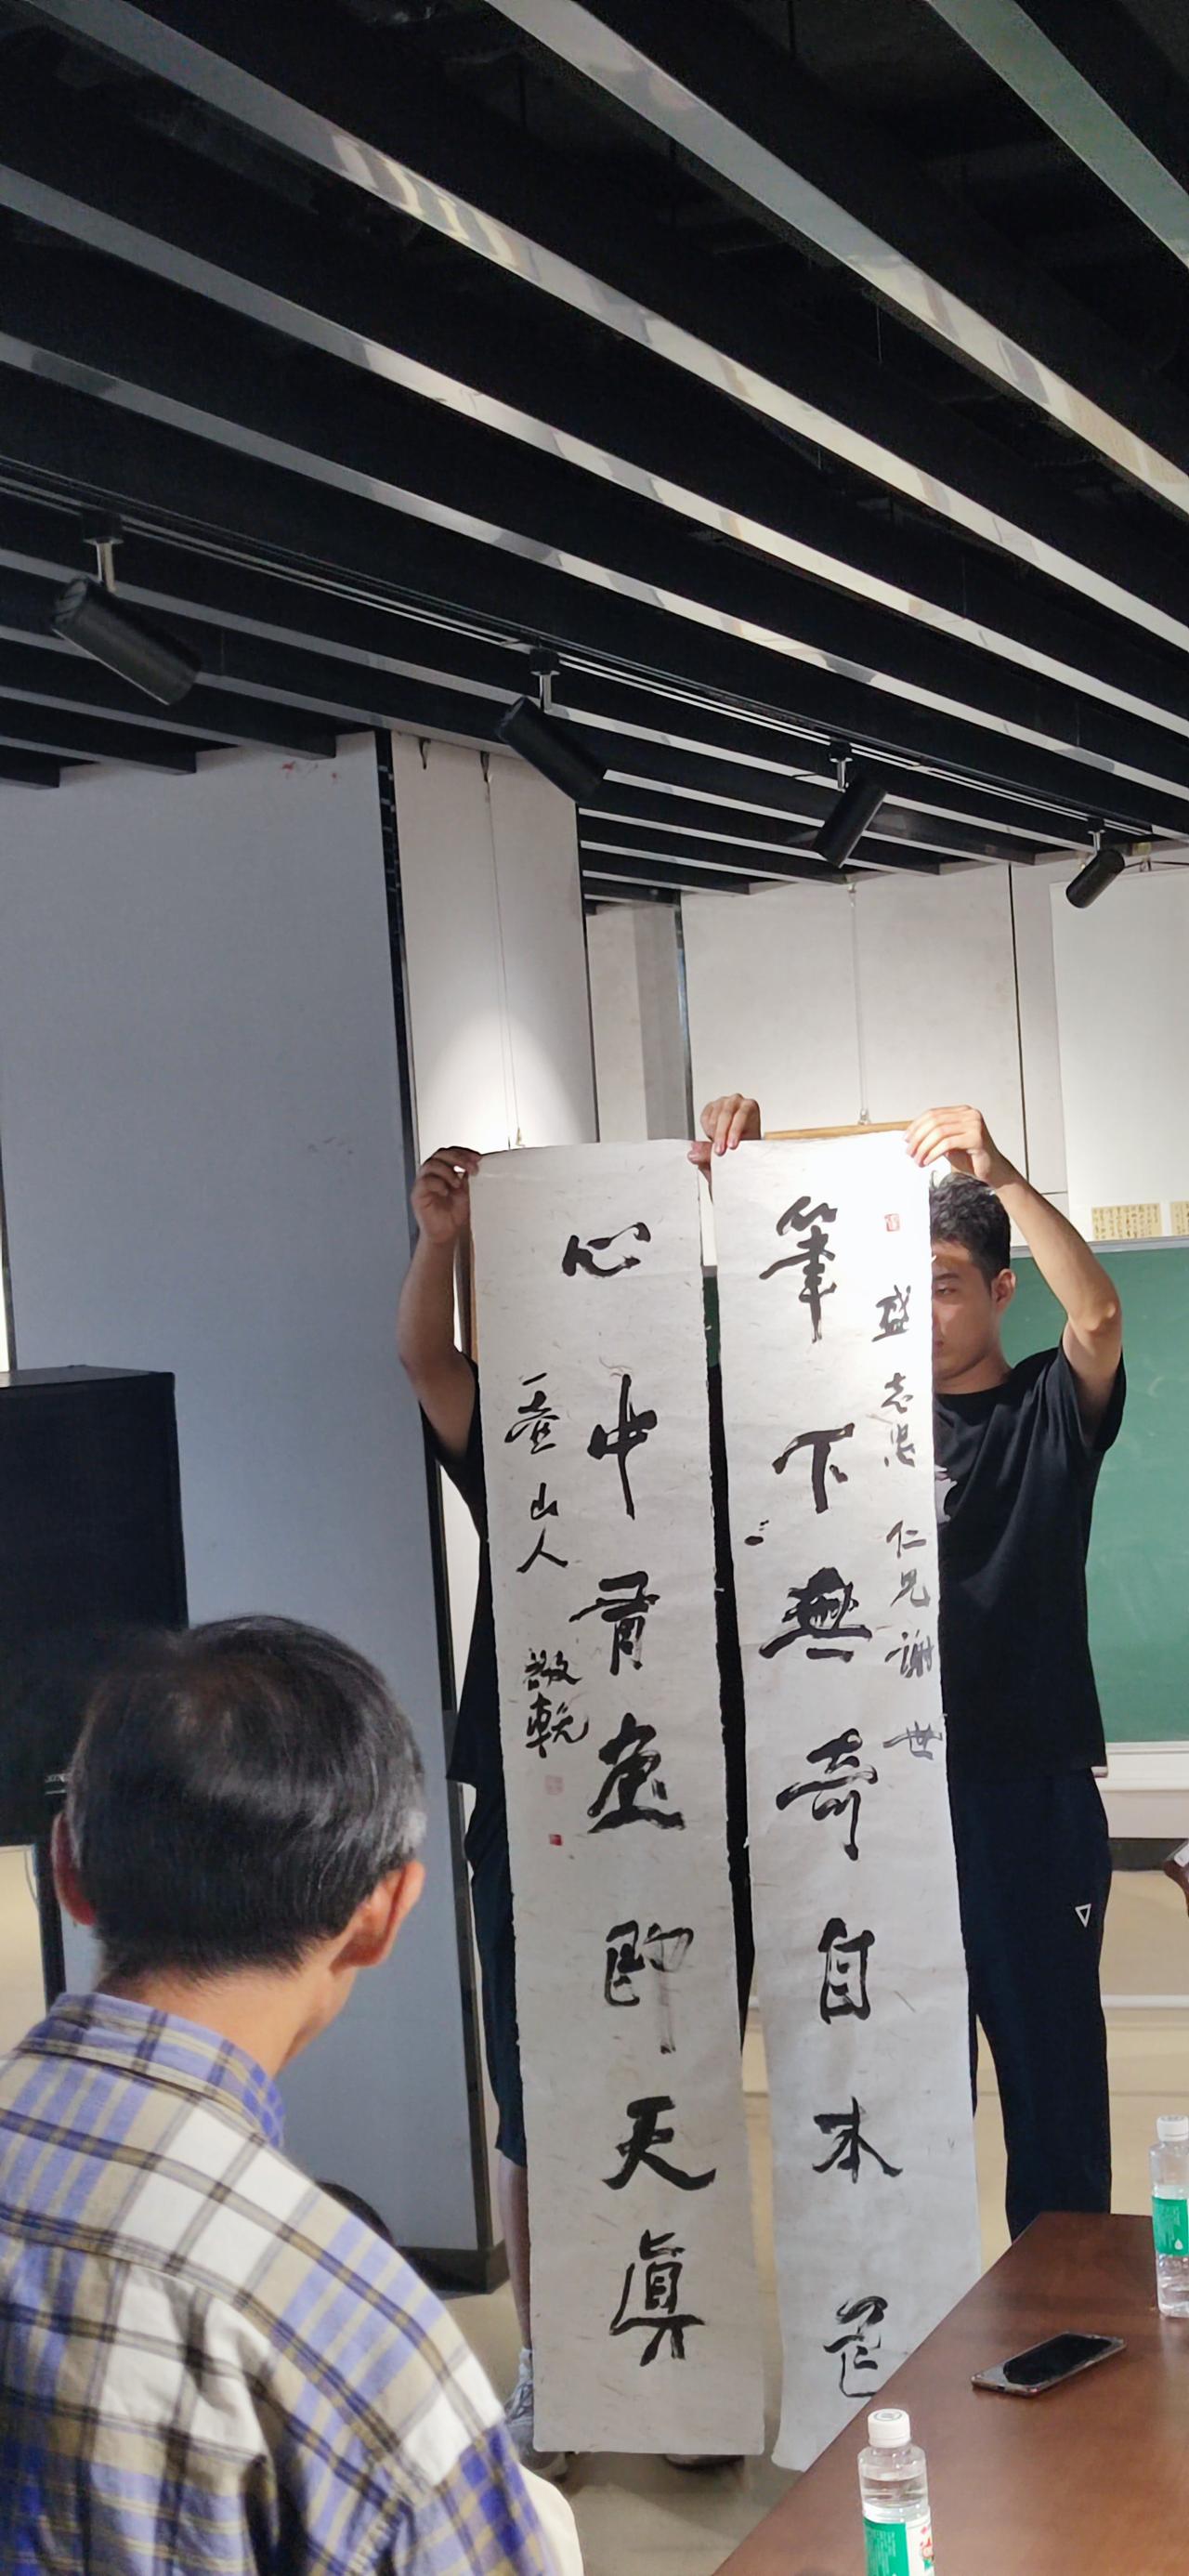 筆下無奇自本色
盛志忠仁兄謝世
心中有
即天真
山人敬輓